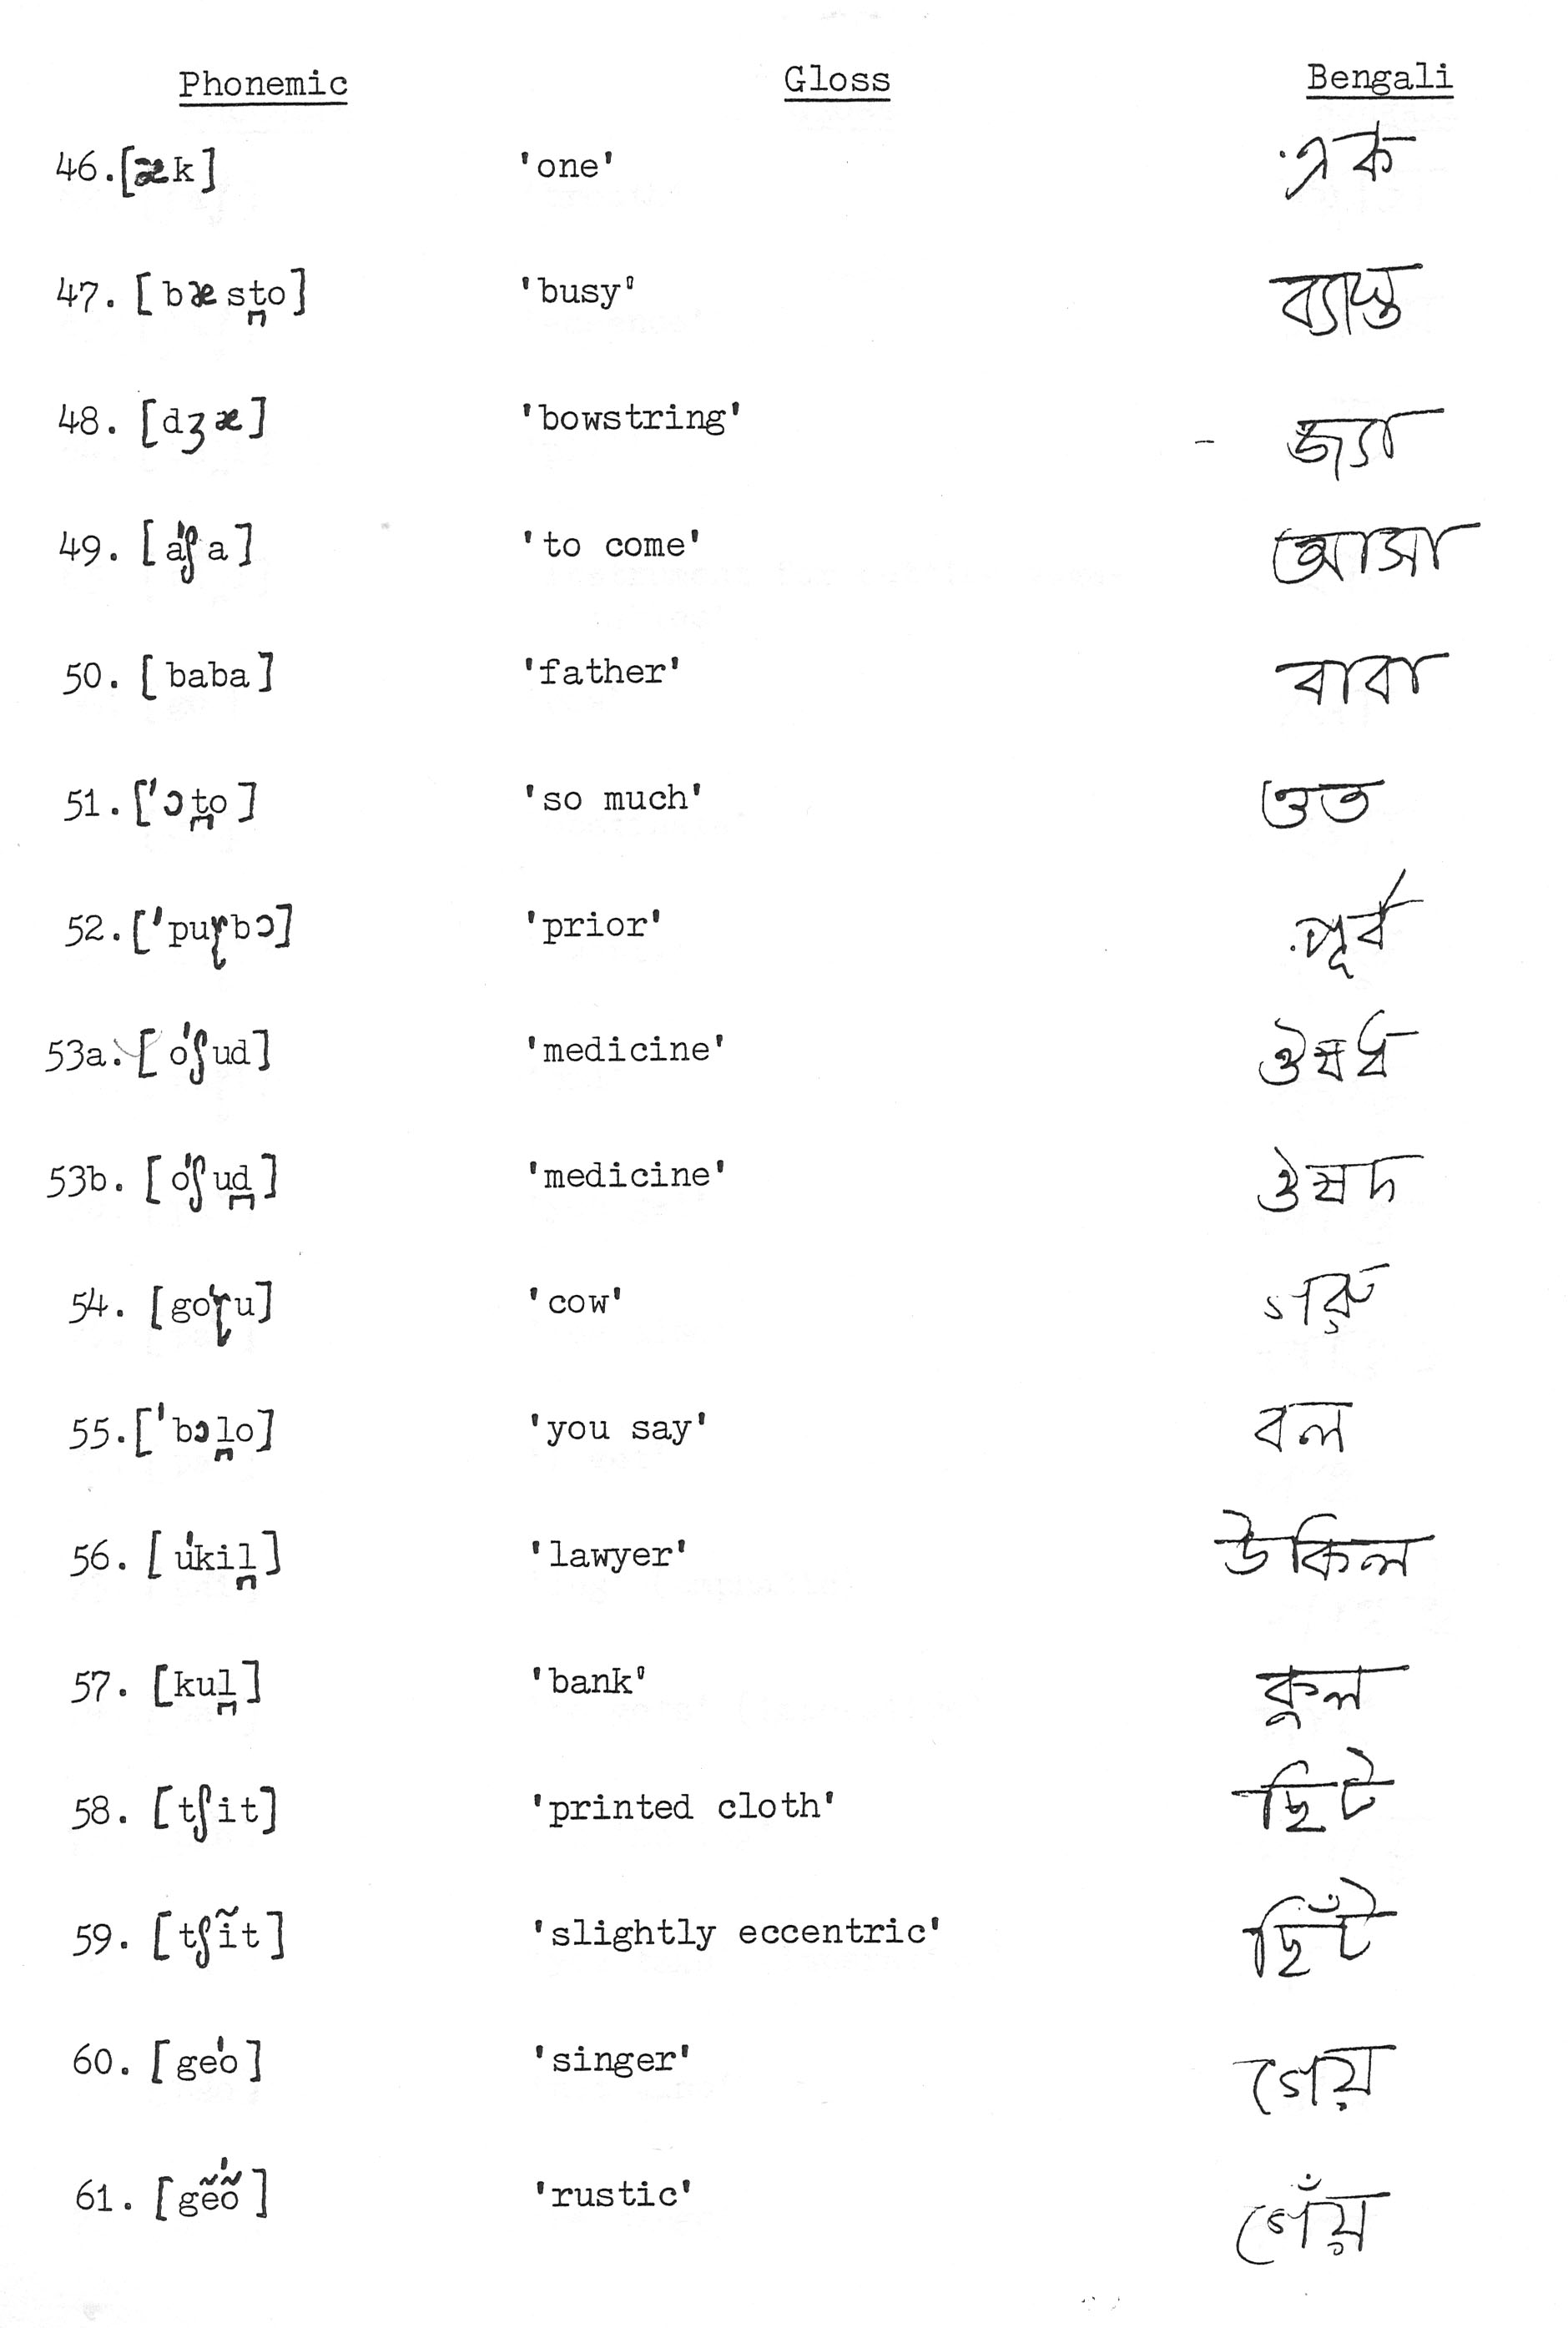 Phonemic Gloss Bengali
46. [æk] 'one' এক
47. [bæst̪o] 'busy' ব্যাস্ত
48. [dʒæ] 'bowstring' জ্যা
49. [a'ʃa] 'to come' আসা
50. [baba] 'father' বাবা
51. ['ɔt̪o] 'so much' অত
52. ['puɽbɔ] 'prior' পূর্ব
53a. [o'ʃud] 'medicine' ঔষধ
53b. [o'ʃud̪] 'medicine' ঔষদ
54. [go'ɽu] 'cow' গরু
55. ['bɔl̪o] 'you say' বল
56. [u'kil̪] 'lawyer' উকিল
57. [kul̪] 'bank' কুল
58. [tʃit] 'printed cloth' ছিট
59. [tʃĩt] 'slightly eccentric' ছিঁট
60. [ge'o] 'singer' গেয়
61. [gẽ'õ] 'rustic' গেঁয়